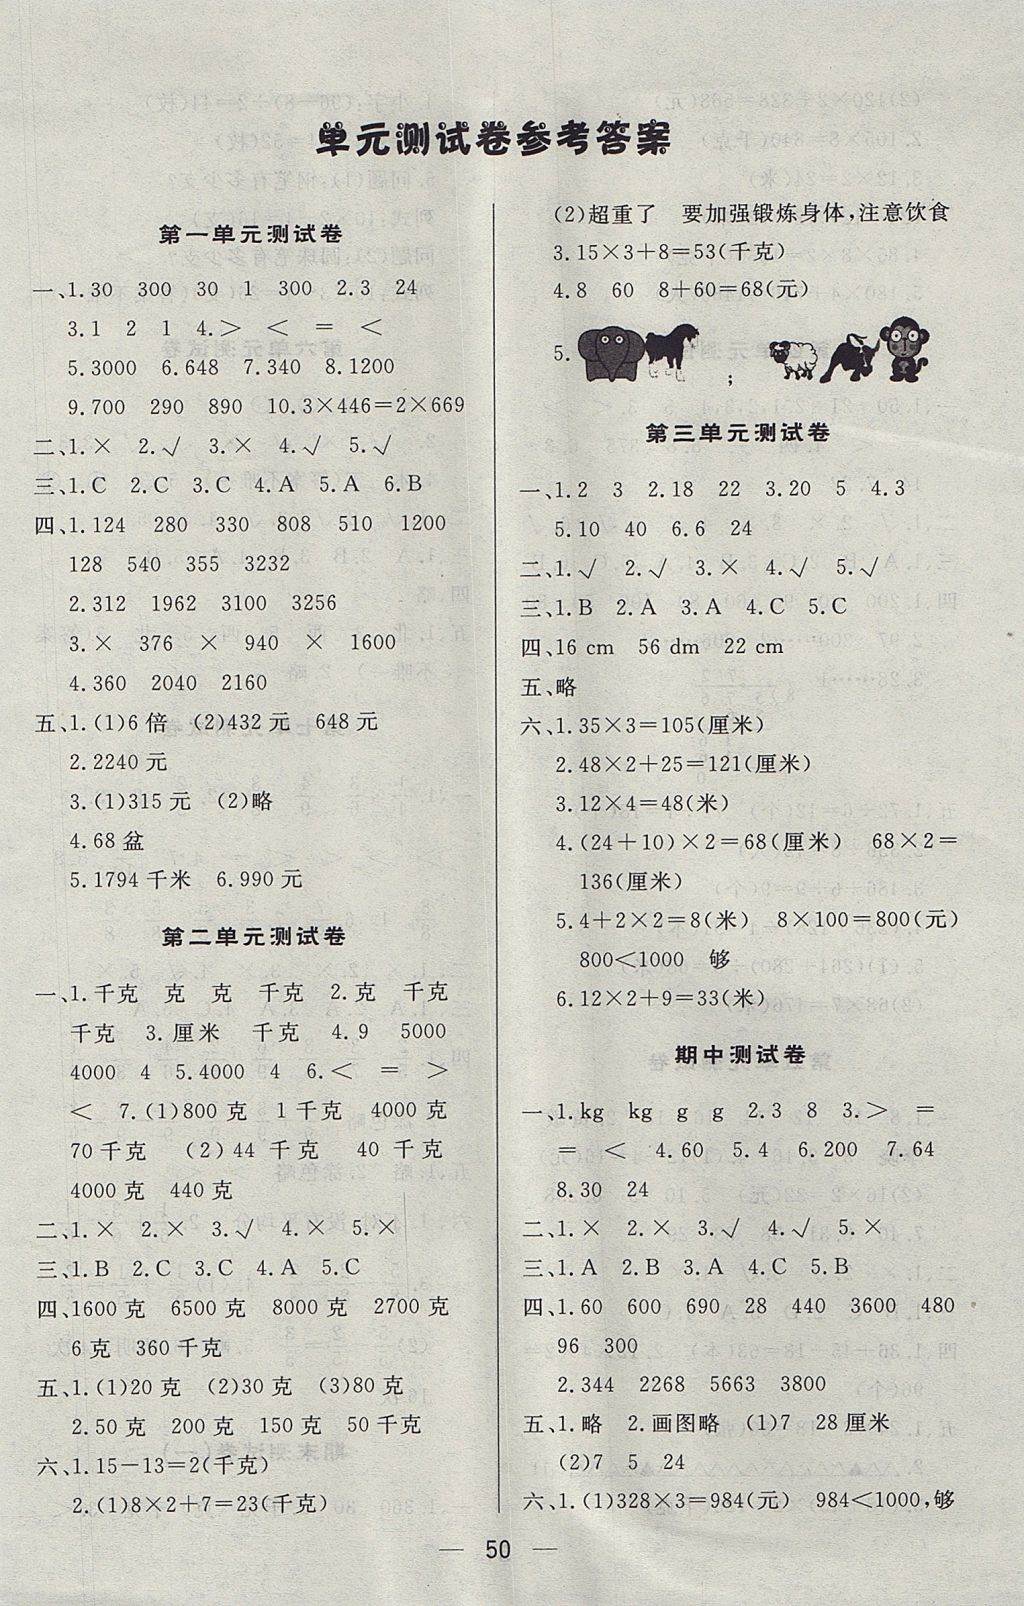 单元测试卷参考答案
第一单元测试卷
一、1.30 300 30 1 300 2.3 24
3.1 2 1 4.> < = <
5.3000 6.648 7.340 8.1200
9.700 290 890 10.3×446=2×669
二、1.× 2.√ 3.× 4.√ 5.√
三、1.C 2.C 3.C 4.A 5.A 6.B
四、1.124 280 330 808 510 1200
128 540 355 3232
2.312 1962 3100 3256
3.× 376 × 940 × 1600
4.360 2040 2160
五、1.(1)6倍 (2)432元 648元
2.2240元
3.(1)315元 (2)略
4.68盆
5.1794千米 6.990元
第二单元测试卷
一、1.千克 克 克 千克 2.克 千克
千克 3.厘米 千克 4.9 5000
4000 4 5.4000 4 6.< = >
< 7.(1)800克 1千克 4000克
70千克 (2)44千克 40千克
4000克 440克
二、1.× 2.× 3.√ 4.× 5.×
三、1.B 2.C 3.C 4.A 5.C
四、1600克 6500克 8000克 2700克
6克 360千克
五、1.(1)20克 (2)30克 (3)80克
2.50克 200克 150克 50千克
六、1.15-13=2(千克)
2.(1)8×2+7=23(千克)
(2)超重了 要加强锻炼身体,注意饮食
3.15×3+8=53(千克)
4.8 60 8+60=68(元)
5. ;
第三单元测试卷
一、1.2 3 2.18 22 3.20 5 4.3
5.10 40 6.6 24
二、1.√ 2.√ 3.× 4.√ 5.√
三、1.B 2.A 3.A 4.C 5.C
四、16 cm 56 dm 22 cm
五、略
六、1.35×3=105(厘米)
2.48×2+25=121(厘米)
3.12×4=48(米)
4.(24+10)×2=68(厘米) 68×2=
136(厘米)
5.4+2×2=8(米) 8×100=800(元)
800<1000 够
6.12×2+9=33(米)
期中测试卷
一、1.kg kg g g 2.3 8 3.> =
= < 4.60 5.4 6.200 7.64
8.30 24
二、1.× 2.× 3.√ 4.√ 5.×
三、1.A 2.B 3.A 4.C 5.B
四、1.60 600 690 28 440 3600 480
96 300
2.344 2268 5663 3800
五、1.略 2.画图略 (1)7 28厘米
(2)7 5 24
六、1.(1)328×3=984(元) 984<1000,够
— 50 —